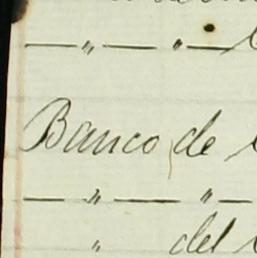 — " — " —
Banco de
— " — " —
" del